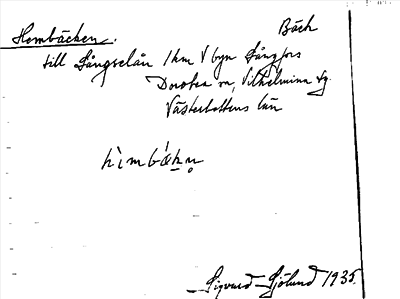 Bäck
Hembäcken.
till Långselån 1 km V byn Långfors
Dorotea sn, Vilhelmina tg.
Västerbottens län
hìmbǽkn̥
Sigvard Sjölund 1935.